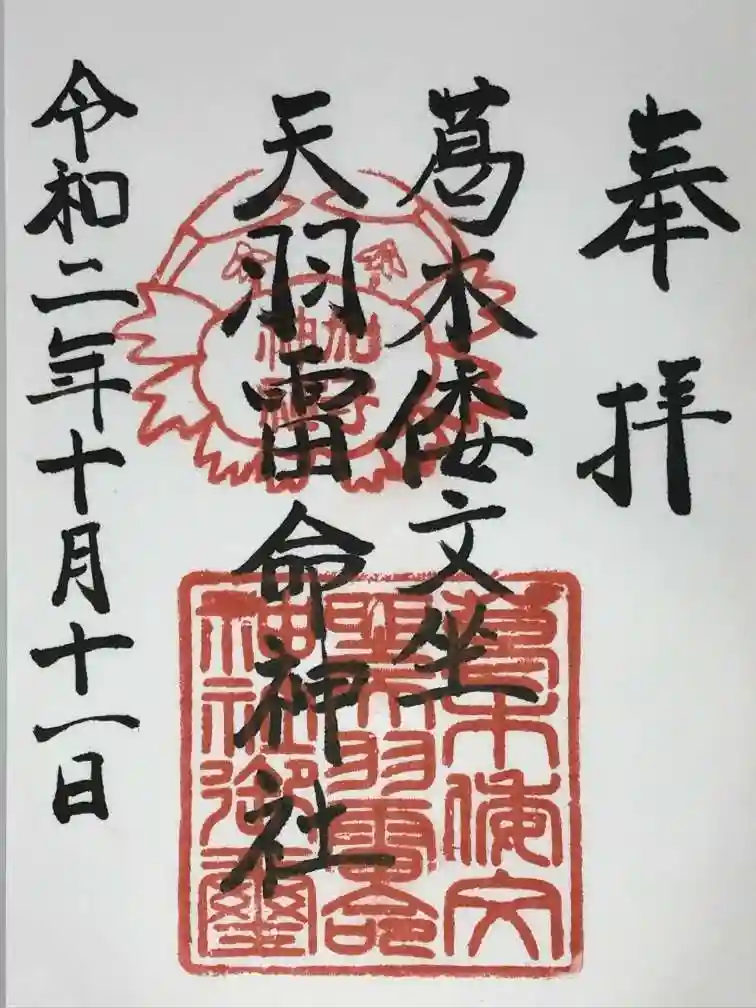 奉拝
葛木倭文坐
天羽雷命神社
令和二年十月十一日
加守
神社
葛木倭文
坐天羽雷命
神社御璽